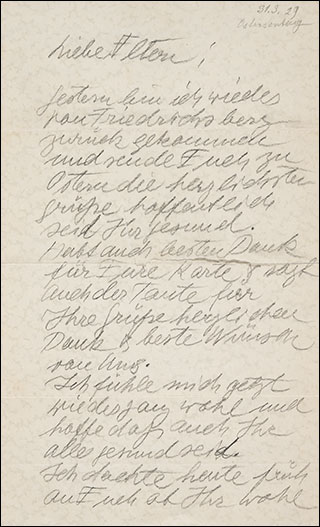 31.3.29
Liebe Eltern!
Gestern bin ich wieder
von Friedrichsberg
zurück gekommen
und sende Euch zu
Ostern die herzlichsten
grüße hoffentlich
seid Ihr gesund.
Habt auch besten Dank
für Eure Karte & sagt
auch der Tante für
Ihre Grüße herzlichen
Dank & beste Wünsch
von Uns.
Ich fühle mich jetzt
wieder ganz wohl und
hoffe daß auch Ihr
alle gesund seid.
Ich dachte heute früh
an Euch ob Ihr wohl